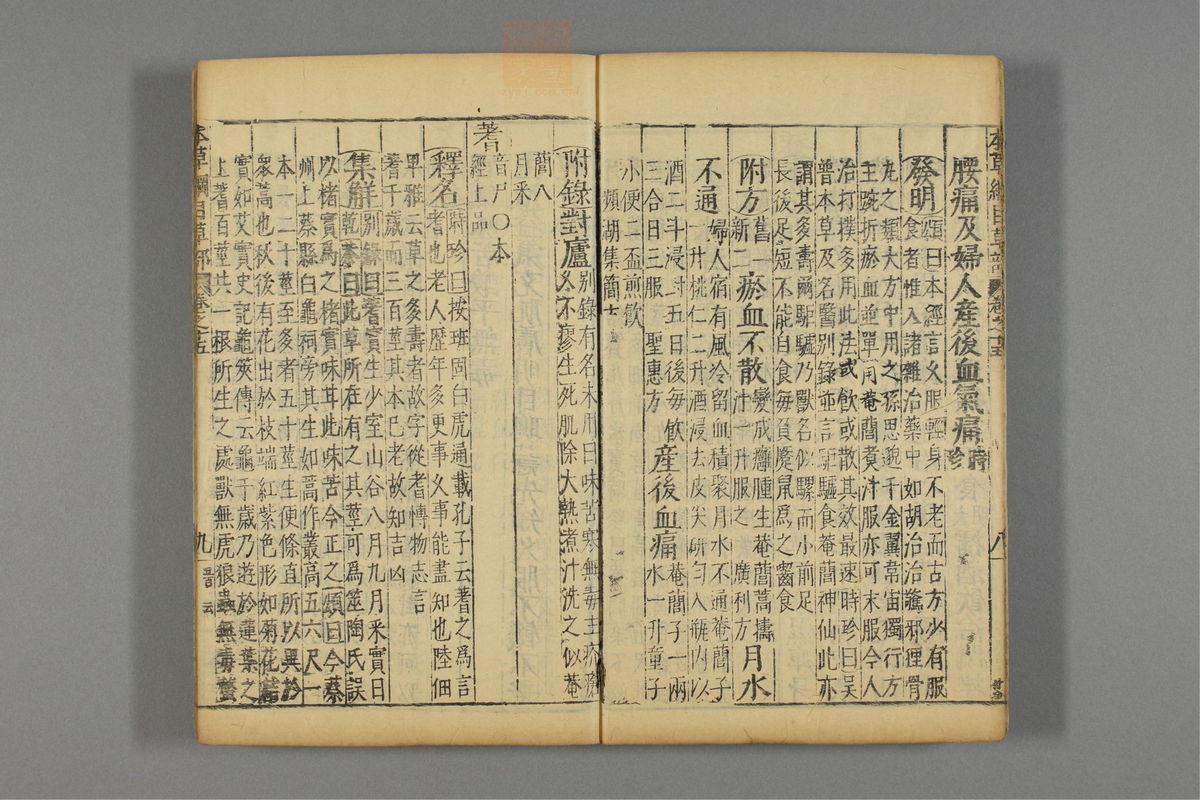 腰痛及婦人產後血氣痛時珍
發明頌曰本經言久服輕身不老而古方少有服
食者惟入諸雜治藥中如胡治治驚邪狸骨
丸之類大方中用之孫思邈千金翼韋宙獨行方
主踠折瘀血並單用菴䕡煑汁服亦可末服今人
治打撲多用此法或飲或散其效最速時珍曰吴
普本草及名醫别錄並言駏驉食菴䕡神仙此亦
謂其多壽爾駏驉乃獸名似騾而小前足
長後足短不能自食每負蹷鼠爲之齧食
附方舊一新二瘀血不散變成癰腫生菴䕡蒿擣汁一升服之廣利方月水
不通婦人宿有風冷留血積聚月水不通菴䕡子一升桃仁二升酒浸去皮尖研匀入瓶内以
酒二斗浸封五日後每飲三合日三服聖惠方產後血痛菴䕡子一兩水一升童子
小便二盃煎飲頻湖集簡方
附錄對廬别錄有名未用曰味苦寒無毒主疥瘡久不瘳生死肌除大熱煮汁洗之似菴
䕡八月采
蓍音尸〇本經上品
釋名時珍曰按班固白虎通載孔子云蓍之爲言
耆也老人歷年多更事久事能盡知也陸佃
埤雅云草之多壽者故字從耆博物志言
蓍千歲而三百莖其本已老故知吉凶
集解别錄曰蓍實生少室山谷八月九月采實日
乾恭曰此草所在有之其莖可爲筮陶氏誤
以楮實爲之楮實味甘此味苦今正之頌曰今蔡
州上蔡縣白龜祠旁其生如蒿作叢高五六尺一
本一二十莖至多者五十莖生便條直所以異於
衆蒿也秋後有花出於枝端紅紫色形如菊花結
實如艾實史記龜筴傳云龜千歲乃遊於蓮葉之
上蓍百莖共一根所生之處獸無虎狼蟲無毒螫
本草綱目草部卷之十五
八
本草綱目草部卷之十五
九